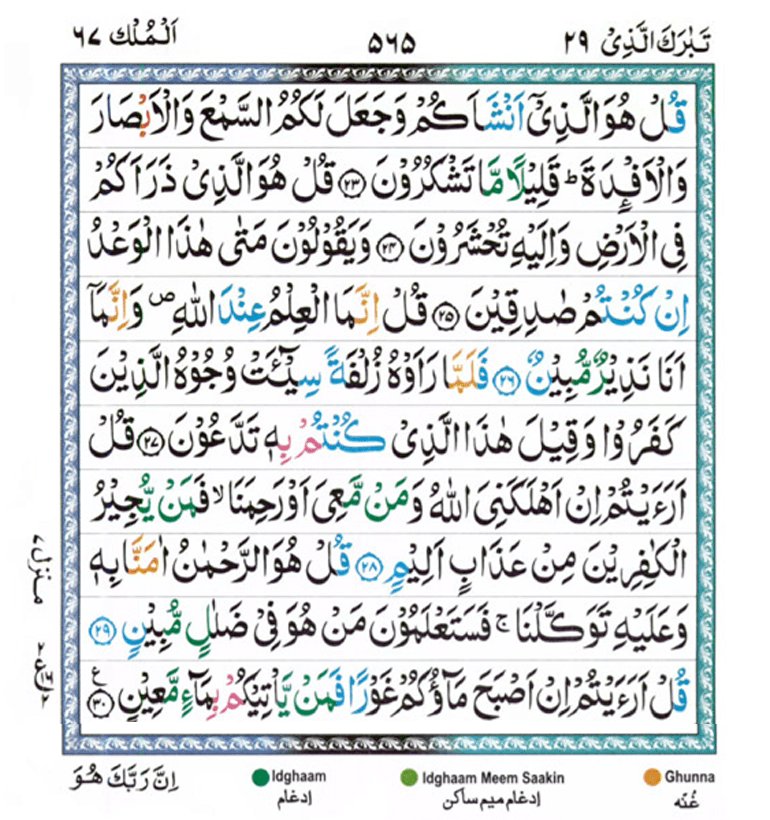 تَبٰرَكَ الَّذِىْ ٢٩ ٥٦٥ اَلْمُلْك ٦٧
قُلْ هُوَ الَّذِىْۤ اَنْشَاَكُمْ وَجَعَلَ لَكُمُ السَّمْعَ وَالْاَبْصَارَ
وَالْاَفْـِٕدَةَ ؕ قَلِيْلًا مَّا تَشْكُرُوْنَ ﴿٢٣﴾ قُلْ هُوَ الَّذِىْ ذَرَاَكُمْ
فِى الْاَرْضِ وَاِلَيْهِ تُحْشَرُوْنَ ﴿٢٤﴾ وَيَقُوْلُوْنَ مَتٰى هٰذَا الْوَعْدُ
اِنْ كُنْتُمْ صٰدِقِيْنَ ﴿٢٥﴾ قُلْ اِنَّمَا الْعِلْمُ عِنْدَ اللّٰهِ ۪ وَاِنَّمَاۤ
اَنَا نَذِيْرٌ مُّبِيْنٌ ﴿٢٦﴾ فَلَمَّا رَاَوْهُ زُلْفَةً سِيْٓـَٔتْ وُجُوْهُ الَّذِيْنَ
كَفَرُوْا وَقِيْلَ هٰذَا الَّذِىْ كُنْتُمْ بِهٖ تَدَّعُوْنَ ﴿٢٧﴾ قُلْ
اَرَءَيْتُمْ اِنْ اَهْلَكَنِىَ اللّٰهُ وَمَنْ مَّعِىَ اَوْ رَحِمَنَا ۙ فَمَنْ يُّجِيْرُ
الْكٰفِرِيْنَ مِنْ عَذَابٍ اَلِيْمٍ ﴿٢٨﴾ قُلْ هُوَ الرَّحْمٰنُ اٰمَنَّا بِهٖ
وَعَلَيْهِ تَوَكَّلْنَا ۚ فَسَتَعْلَمُوْنَ مَنْ هُوَ فِىْ ضَلٰلٍ مُّبِيْنٍ ﴿٢٩﴾
قُلْ اَرَءَيْتُمْ اِنْ اَصْبَحَ مَآؤُكُمْ غَوْرًا فَمَنْ يَّاْتِيْكُمْ بِمَآءٍ مَّعِيْنٍ ﴿٣٠﴾ ع
منزل ٧
ع ٢ ١٦ ٢
اِنَّ رَبَّكَ هُوَ
Idghaam
ادغام
Idghaam Meem Saakin
ادغام میم ساکن
Ghunna
غُنّہ